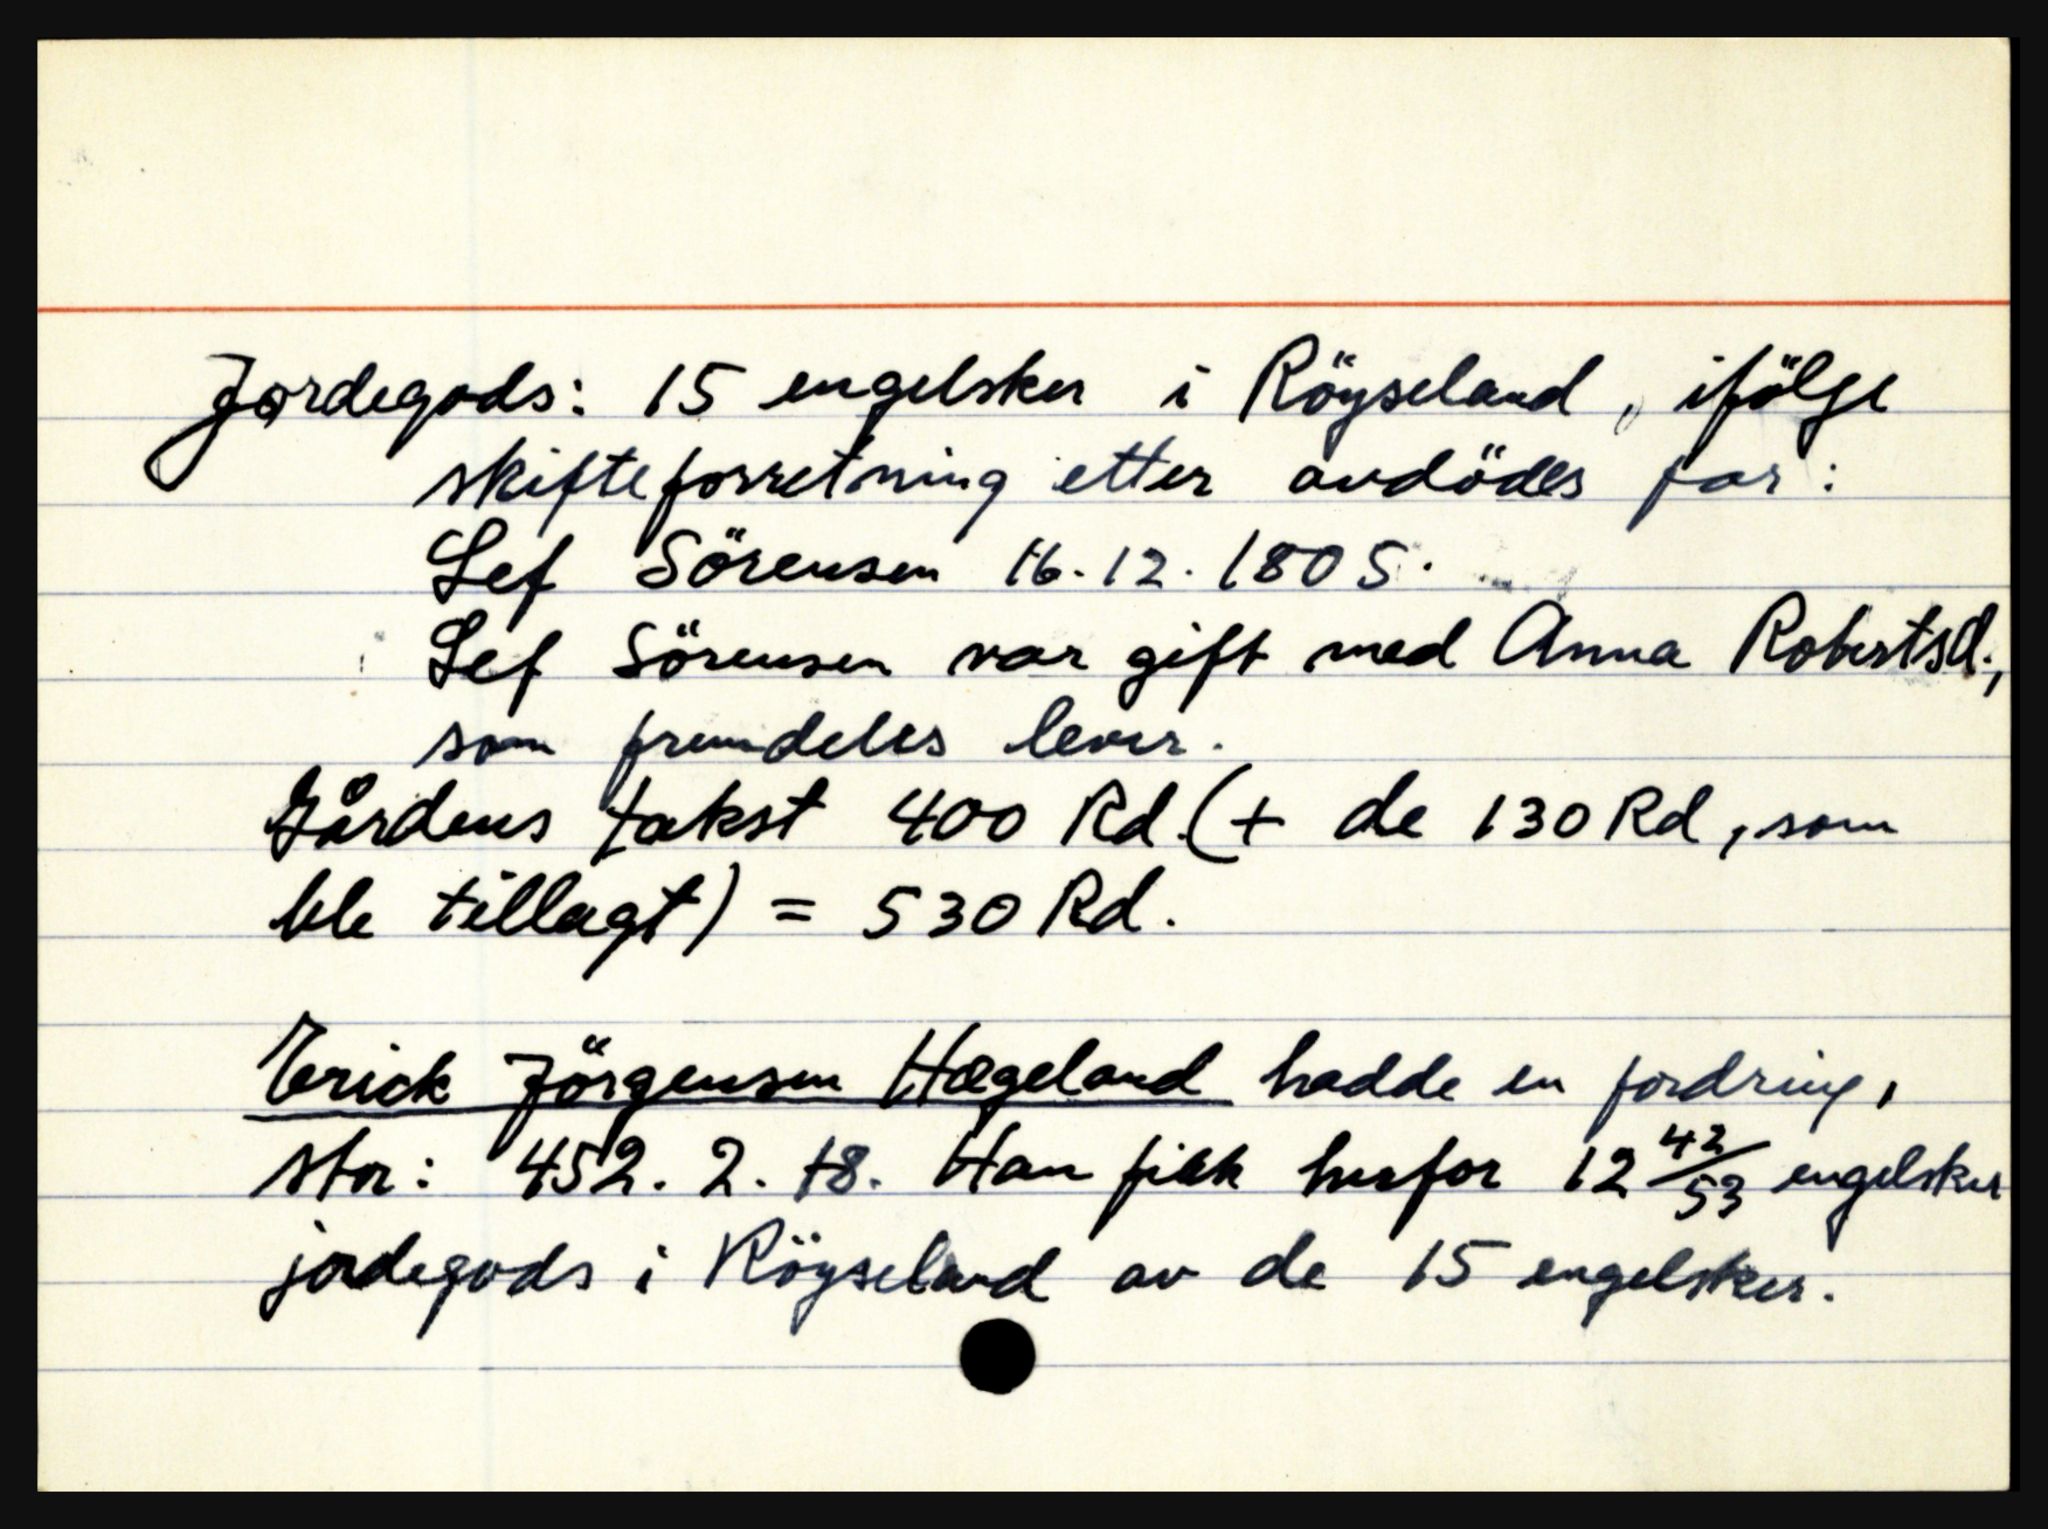 Jordegods: 15 engelsker i Röyseland, ifölge
skifteforretning etter avdödes far:
Lef Sörensen 16.12.1805.
Lef Sörensen var gift med Anna Robertsd.,
som fremdeles lever.
Gårdens takst 400 Rd. (+ de 130 Rd, som
ble tillagt) = 530 Rd.
Erick Jörgensen Hægeland hadde en fordring,
stor: 452. 2. 18. Han fikk herfor 12 42/53 engelsker
jordegods i Röyseland av de 15 engelsker.